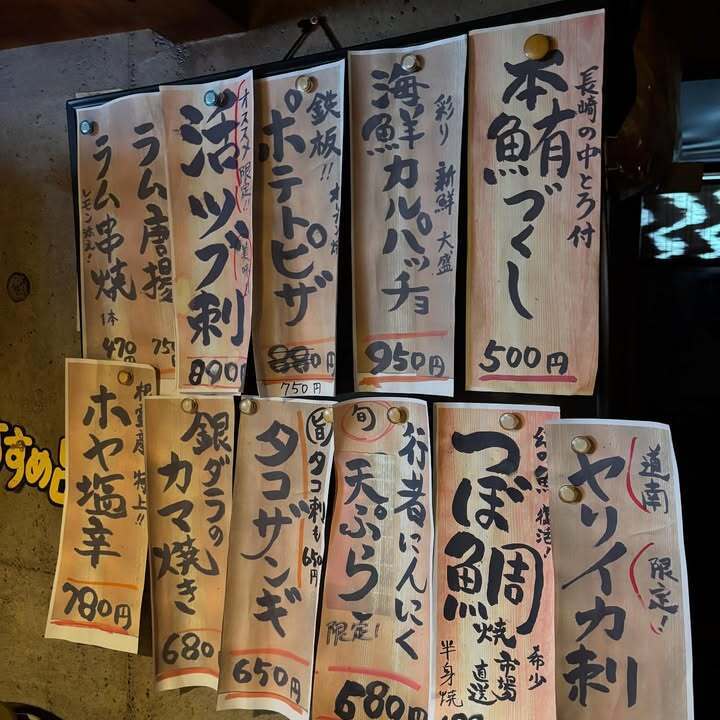 長崎の中とろ付
本鮪づくし
500円
彩り 新鮮 大盛
海鮮カルパッチョ
950円
鉄板!!
ポテトピザ
750円
オススメ限定!!
活ツブ刺
890円
ラム唐揚
ラム串焼
レモン添え!
1本
470円
道南
限定!
ヤリイカ刺
幻の魚 復活!
つぼ鯛
焼
希少
市場
直送
半身焼
旬
行者にんにく
天ぷら
限定!
680円
旬
タコ刺も
650円
タコザンギ
650円
銀ダラの
カマ焼き
680
根室産 特上!!
ホヤ塩辛
780円
すすめ